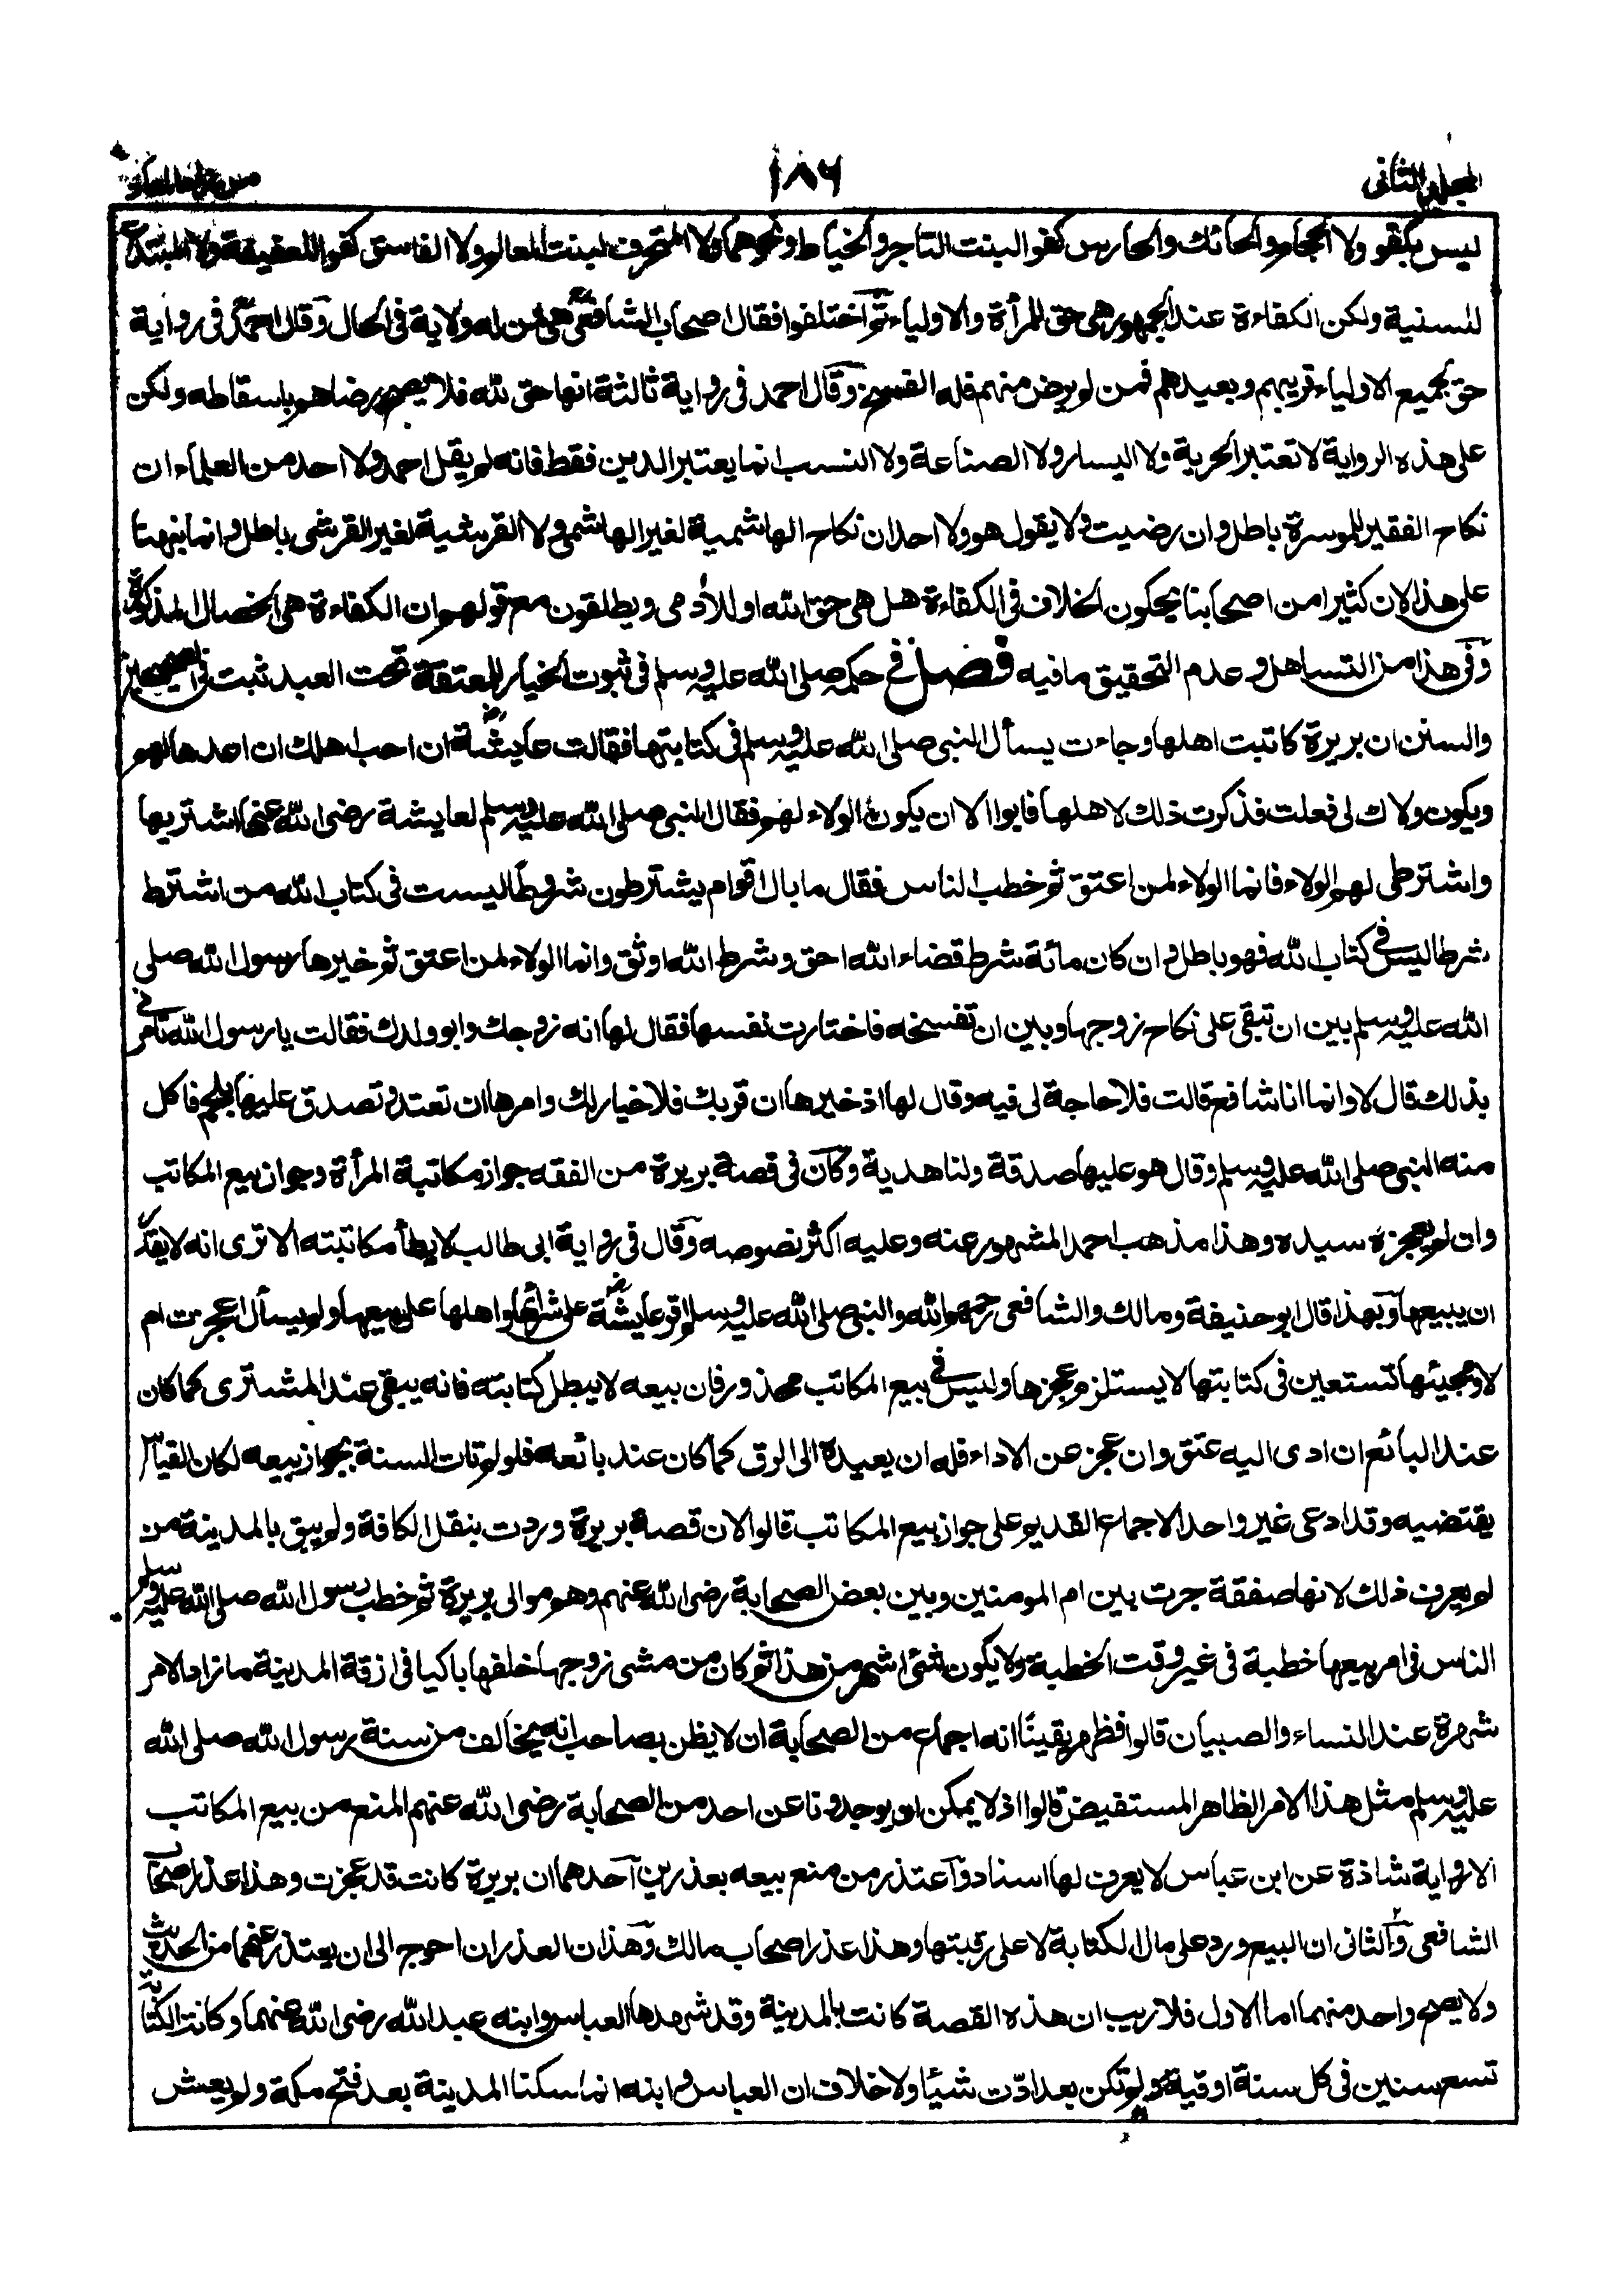 المجلد الثانى
١٨٦
من زاد المعاد
ليس بكفو ولا الحجام والحائك والحارس كفو البنت التاجر والخياط ونحوهما ولا المحترف لبنت العالم ولا الفاسق كفو اللعفيفة ولا المبتدع
للسنية ولكن الكفاءة عند الجمهور هى حق للمرأة والاولياء ثم اختلفوا فقال اصحاب الشافعى هى لمن له ولاية فى الحال وقال احمد فى رواية
حق لجميع الاولياء قريبهم وبعيدهم فمن لم يرض منهم فله الفسخ وقال احمد فى رواية ثالثة انها حق لله فلا يصح رضاهم باسقاطه ولكن
على هذه الرواية لا تعتبر الحرية ولا اليسار ولا الصناعة ولا النسب انما يعتبر الدين فقط فانه لم يقل احمد ولا احد من العلماء ان
نكاح الفقير للموسرة باطل وان رضيت ولا يقول هو ولا احد ان نكاح الهاشمية لغير الهاشمى ولا القرشية لغير القرشى باطل وانما نبهنا
على هذا لان كثيرا من اصحابنا يحكون الخلاف فى الكفاءة هل هى حق الله او للادمى ويطلقون مع قولهم ان الكفاءة هى الخصال المذكورة
وفى هذا من التساهل وعدم التحقيق ما فيه فصل فى حكمه صلى الله عليه وسلم فى ثبوت الخيار للمعتقة تحت العبد ثبت فى الصحيحين
والسنن ان بريرة كاتبت اهلها وجاءت يسأل النبى صلى الله عليه وسلم فى كتابتها فقالت عايشة رض ان احب اهلك ان اعدها لهم
ويكون ولاك لى فعلت فذكرت ذلك لاهلها فابوا الا ان يكون الولاء لهم فقال النبى صلى الله عليه وسلم لعايشة رضى الله عنها اشتريها
واشترطى لهم الولاء فانما الولاء لمن اعتق ثم خطب الناس فقال ما بال اقوام يشترطون شروطا ليست فى كتاب الله من اشترط
شرطا ليس فى كتاب الله فهو باطل وان كان مائة شرط قضاء الله احق وشرط الله اوثق وانما الولاء لمن اعتق ثم خيرها رسول الله صلى
الله عليه وسلم بين ان تبقى على نكاح زوجها وبين ان تفسخه فاختارت نفسها فقال لها انه زوجك وابو ولدك فقالت يا رسول الله تامرنى
بذلك قال لا وانما انا شافع قالت فلا حاجة لى فيه وقال لها اذ خيرها ان قربك فلا خيار لك وامرها ان تعتد وتصدق عليها بلحم فاكل
منه النبى صلى الله عليه وسلم وقال هو عليها صدقة ولنا هدية وكان فى قصة بريرة من الفقه جواز مكاتبة المرأة وجواز بيع المكاتب
وان لم يعجزه سيده وهذا مذهب احمد المشهور عنه وعليه اكثر نصوصه وقال فى رواية ابى طالب لا يطأ مكاتبته الا ترى انه لا يقدر
ان يبيعها وبهذا قال ابو حنيفة ومالك والشافعى رحمهم الله والنبى صلى الله عليه وسلم اقر عايشة رض على شرائها واهلها على بيعها ولم يسأل اعجزت ام
لا ومجيئها تستعين فى كتابتها لا يستلزم عجزها وليس فى بيع المكاتب محذور فان بيعه لا يبطل كتابته فانه يبقى عند المشترى كما كان
عند البائع ان ادى اليه عتق وان عجز عن الاداء فله ان يعيده الى الرق كما كان عند بائعه فلو لم تات السنة بجواز بيعه لكان القياس
يقتضيه وقد ادعى غير واحد الاجماع القديم على جواز بيع المكاتب قالوا لان قصة بريرة وردت بنقل الكافة ولم يبق بالمدينة من
لم يعرف ذلك لانها صفقة جرت بين ام المومنين وبين بعض الصحابة رضى الله عنهم وهم موالى بريرة ثم خطب رسول الله صلى الله عليه وسلم
الناس فى امر بيعها خطبة فى غير وقت الخطبة ولا يكون شئ اشهر من هذا ثم كان من مشى زوجها خلفها باكيا فى ازقة المدينة ما زاد الامر
شهرة عند النساء والصبيان قالوا فظهر يقينا انه اجماع من الصحابة ان لا يظن بصاحب انه يخالف من سنة رسول الله صلى الله
عليه وسلم مثل هذا الامر الظاهر المستفيض قالوا اذ لا يمكن ان يوجدونا عن احد من الصحابة رضى الله عنهم المنع من بيع المكاتب
الا رواية شاذة عن ابن عباس لا يعرف لها اسناد واعتذر من منع بيعه بعذرين احدهما ان بريرة كانت قد عجزت وهذا عذر اصحاب
الشافعى والثانى ان البيع ورد على مال الكتابة لا على رقبتها وهذا عذر اصحاب مالك وهذان العذران احوج الى ان يعتذر عنهما من الحديث
ولا يصح واحد منهما اما الاول فلا ريب ان هذه القصة كانت بالمدينة وقد شهدها العباس وابنه عبد الله رضى الله عنهما وكانت الكتابة
تسع سنين فى كل سنة اوقية ولم تكن بعد ادت شيئا ولا خلاف ان العباس وابنه انما سكنا المدينة بعد فتح مكة ولم يعش